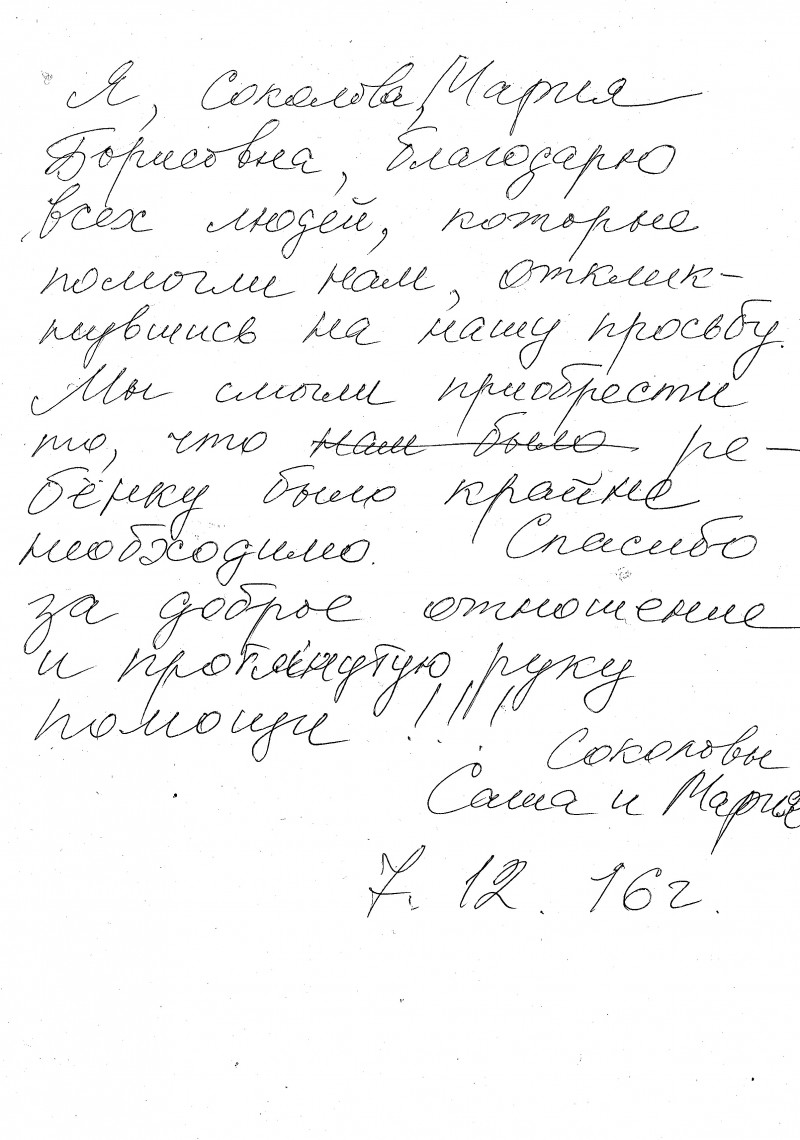 Я, Соколова Мария
Борисовна, благодарю
всех людей, которые
помогли нам, отклик-
нувшись на нашу просьбу.
Мы смогли приобрести
то, что ~~нам было~~ ре-
бёнку было крайне
необходимо. Спасибо
за доброе отношение
и протянутую руку
помощи !!!!
Соколовы
Саша и Мария
7. 12. 16г.